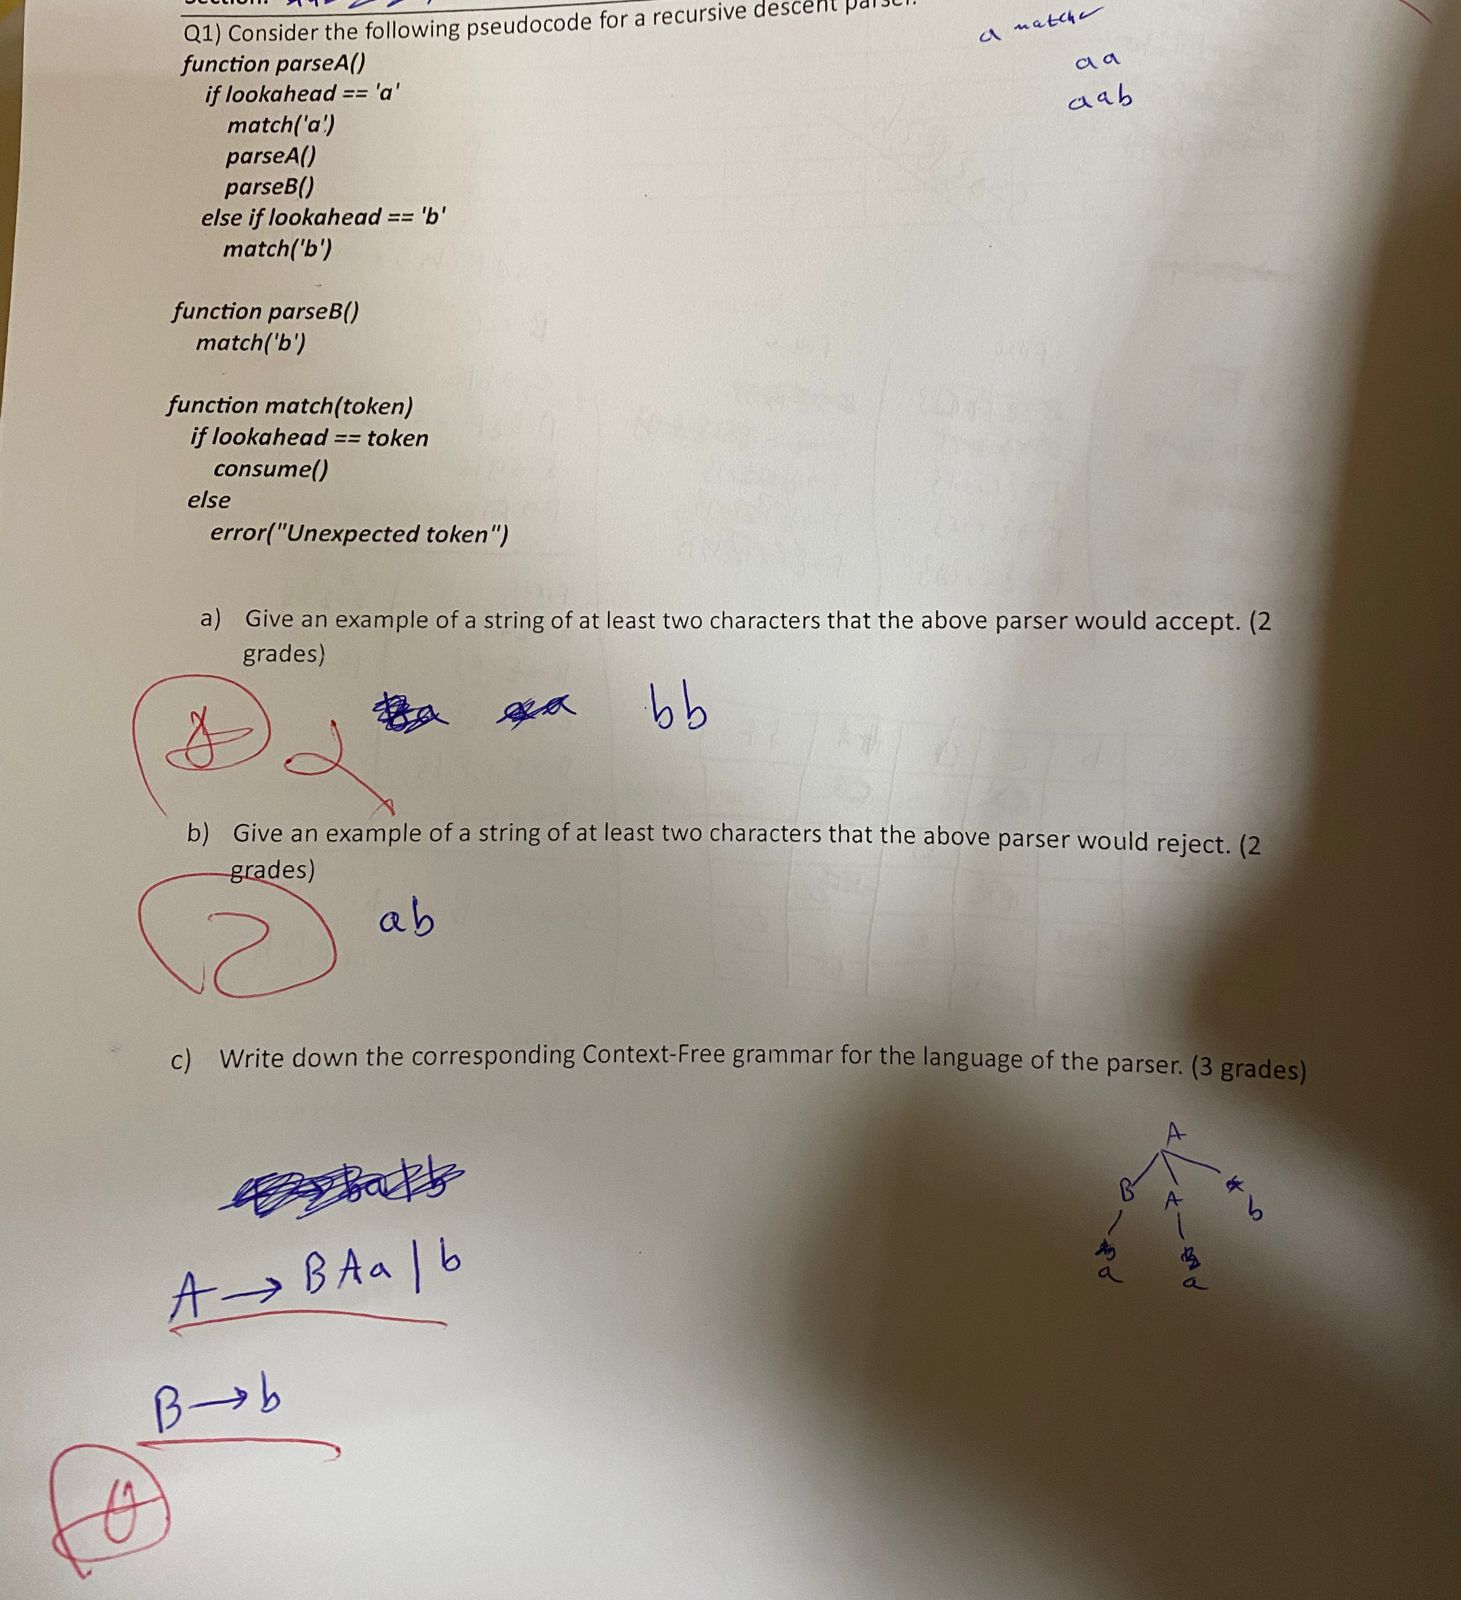 Q1) Consider the following pseudocode for a recursive descent parser. a matche
function parseA() a a
if lookahead == 'a' a a b
match('a')
parseA()
parseB()
else if lookahead == 'b'
match('b')
function parseB()
match('b')
function match(token)
if lookahead == token
consume()
else
error("Unexpected token")
a) Give an example of a string of at least two characters that the above parser would accept. (2
grades)
bb
2
b) Give an example of a string of at least two characters that the above parser would reject. (2
grades)
ab
2
c) Write down the corresponding Context-Free grammar for the language of the parser. (3 grades)
A
B A b
a a
A → BAa | b
B → b